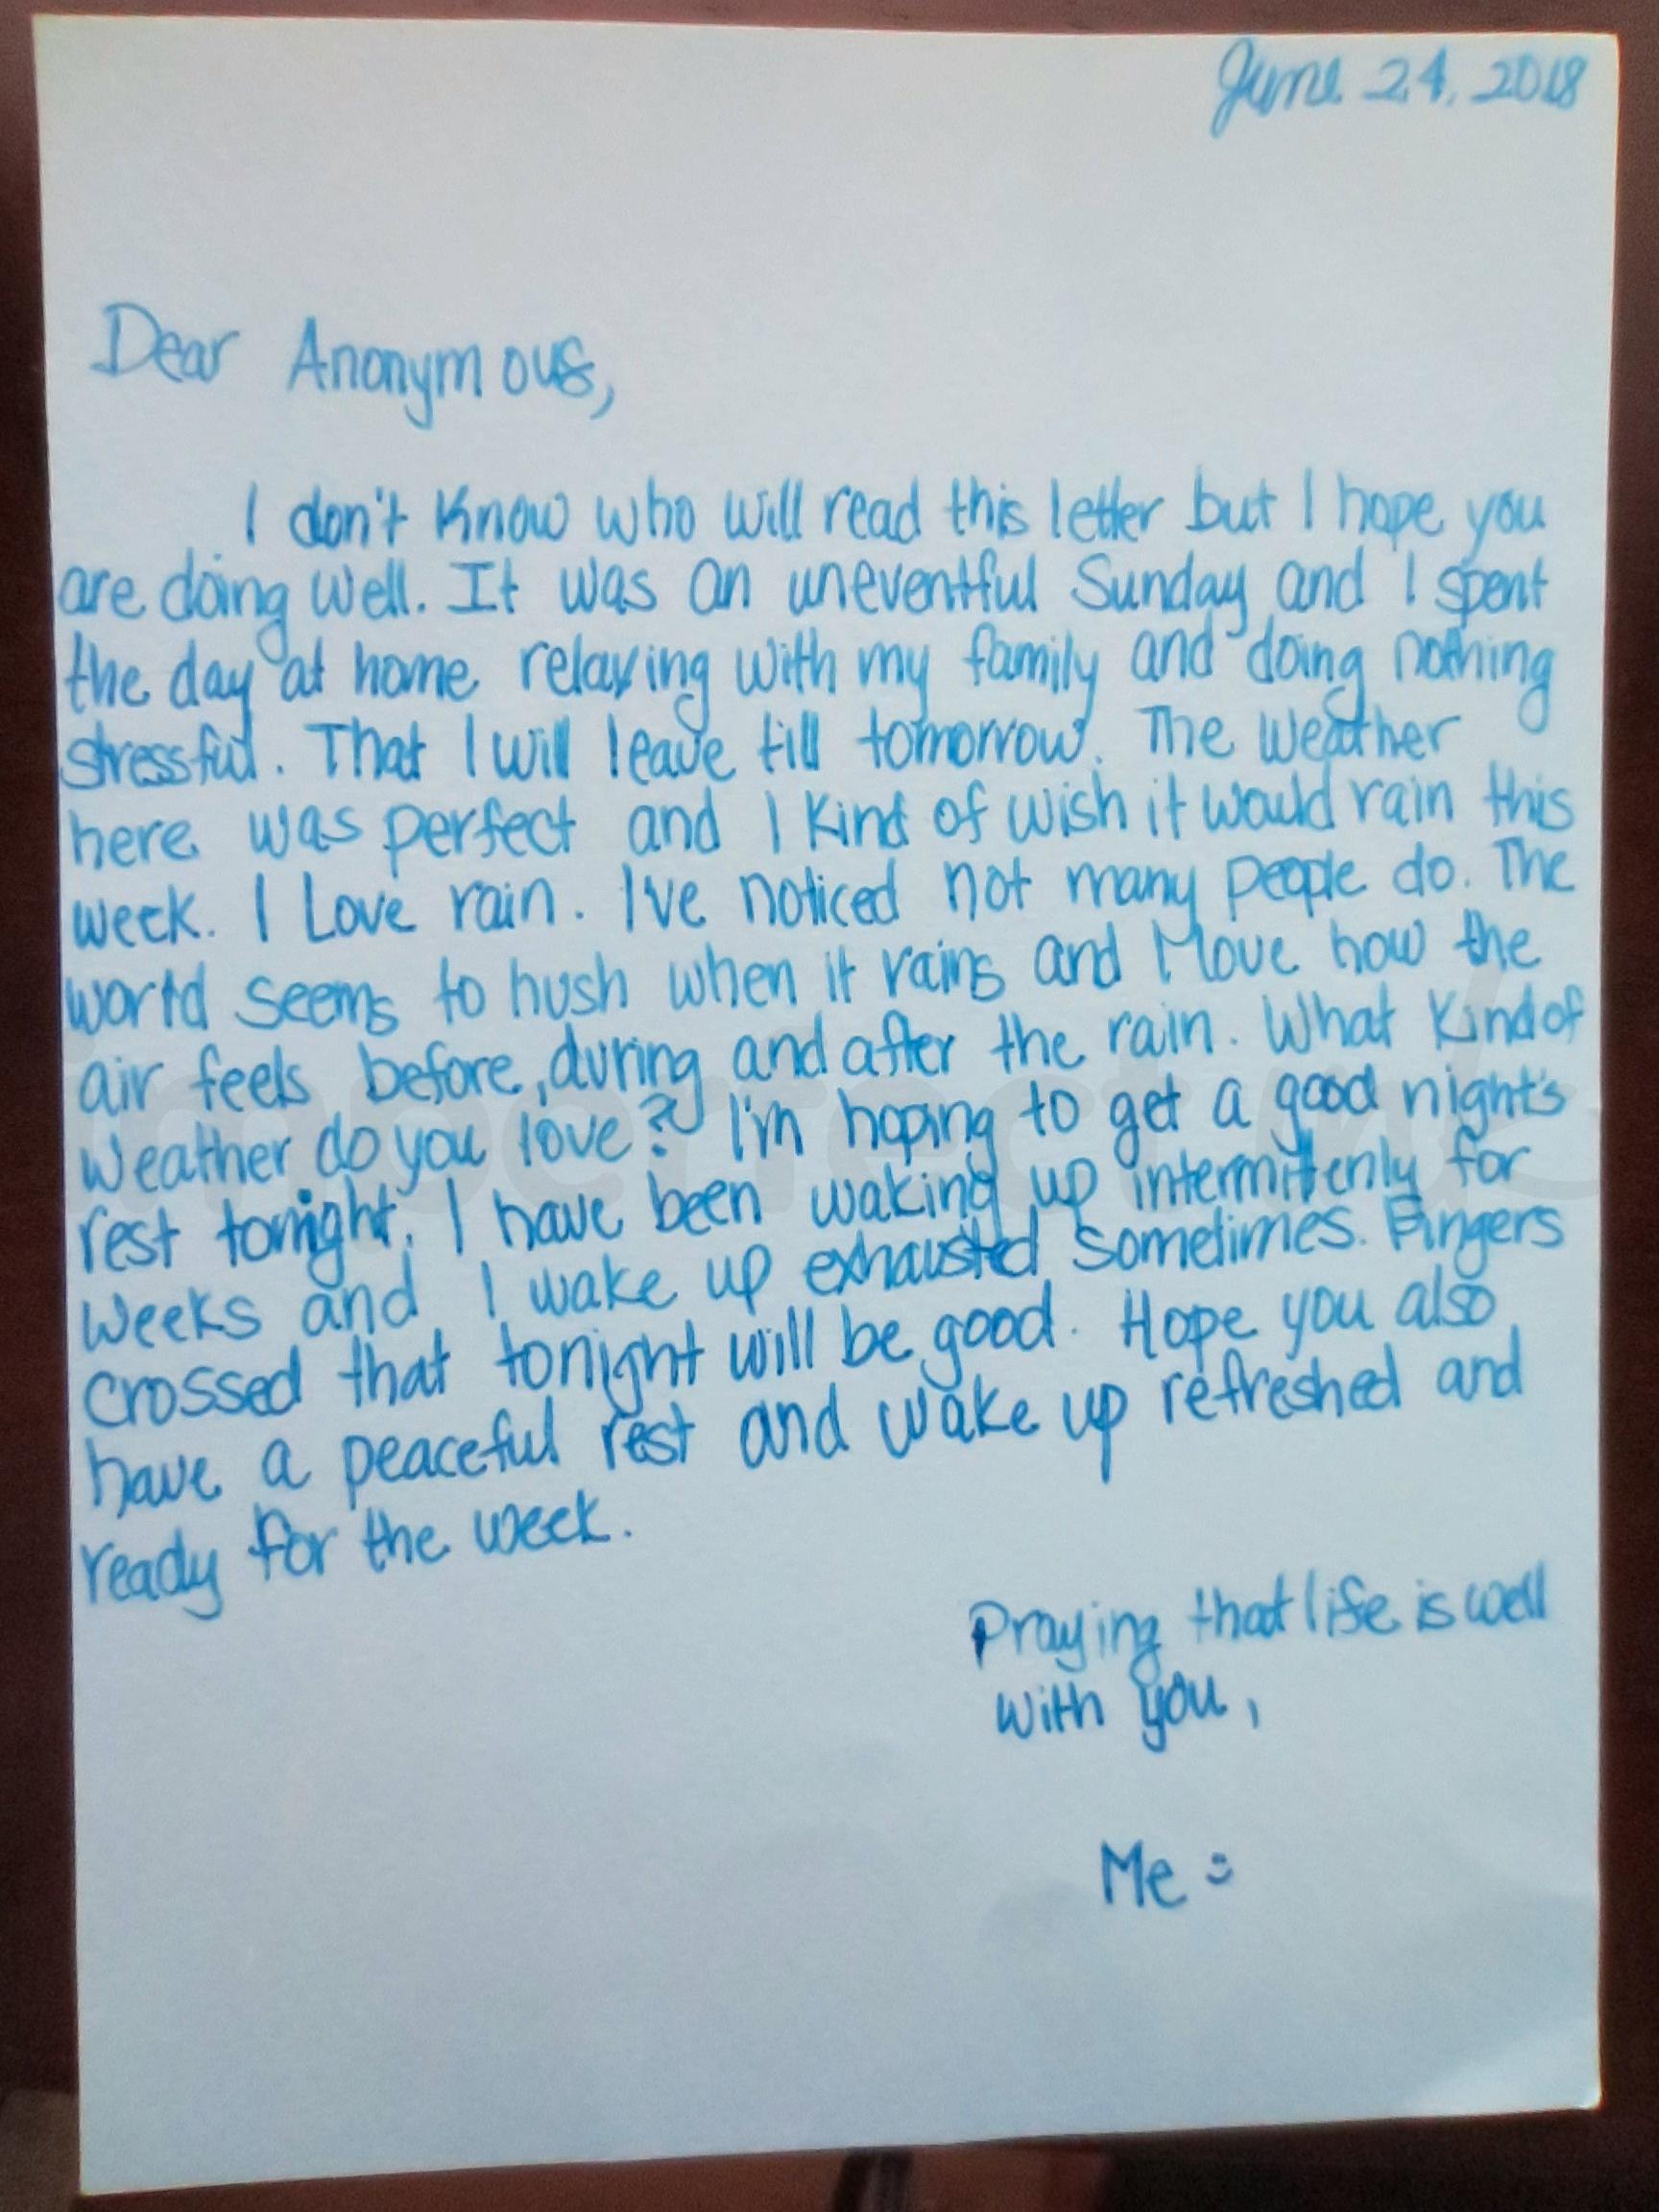 June 24, 2018
Dear Anonymous,
I don't know who will read this letter but I hope you
are doing well. It was an uneventful Sunday and I spent
the day at home relaxing with my family and doing nothing
stressful. That I will leave till tomorrow. The weather
here was perfect and I kind of wish it would rain this
week. I Love rain. I've noticed not many people do. The
world seems to hush when it rains and I love how the
air feels before, during and after the rain. What kind of
weather do you love? I'm hoping to get a good night's
rest tonight. I have been waking up intermittenly for
weeks and I wake up exhausted sometimes. Fingers
crossed that tonight will be good. Hope you also
have a peaceful rest and wake up refreshed and
ready for the week.
Praying that life is well
with you,
Me :)
imperfect ink